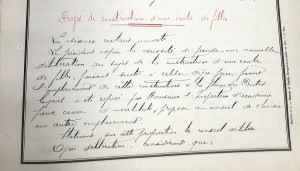 Projet de construction d'une école de filles
La séance restant ouverte.
Le Président expose la nécessité de prendre une nouvelle
délibération au sujet de la construction d'une école
de filles, faisant suite à celles déjà prises, pour
l'emplacement de cette construction à la place
lequel a été refusé par Monsieur l'Inspecteur d'académie
pour cause d'insalubrité, propose au conseil de choisir
un autre emplacement.
Statuant sur cette proposition le conseil
Après délibération, considérant que :